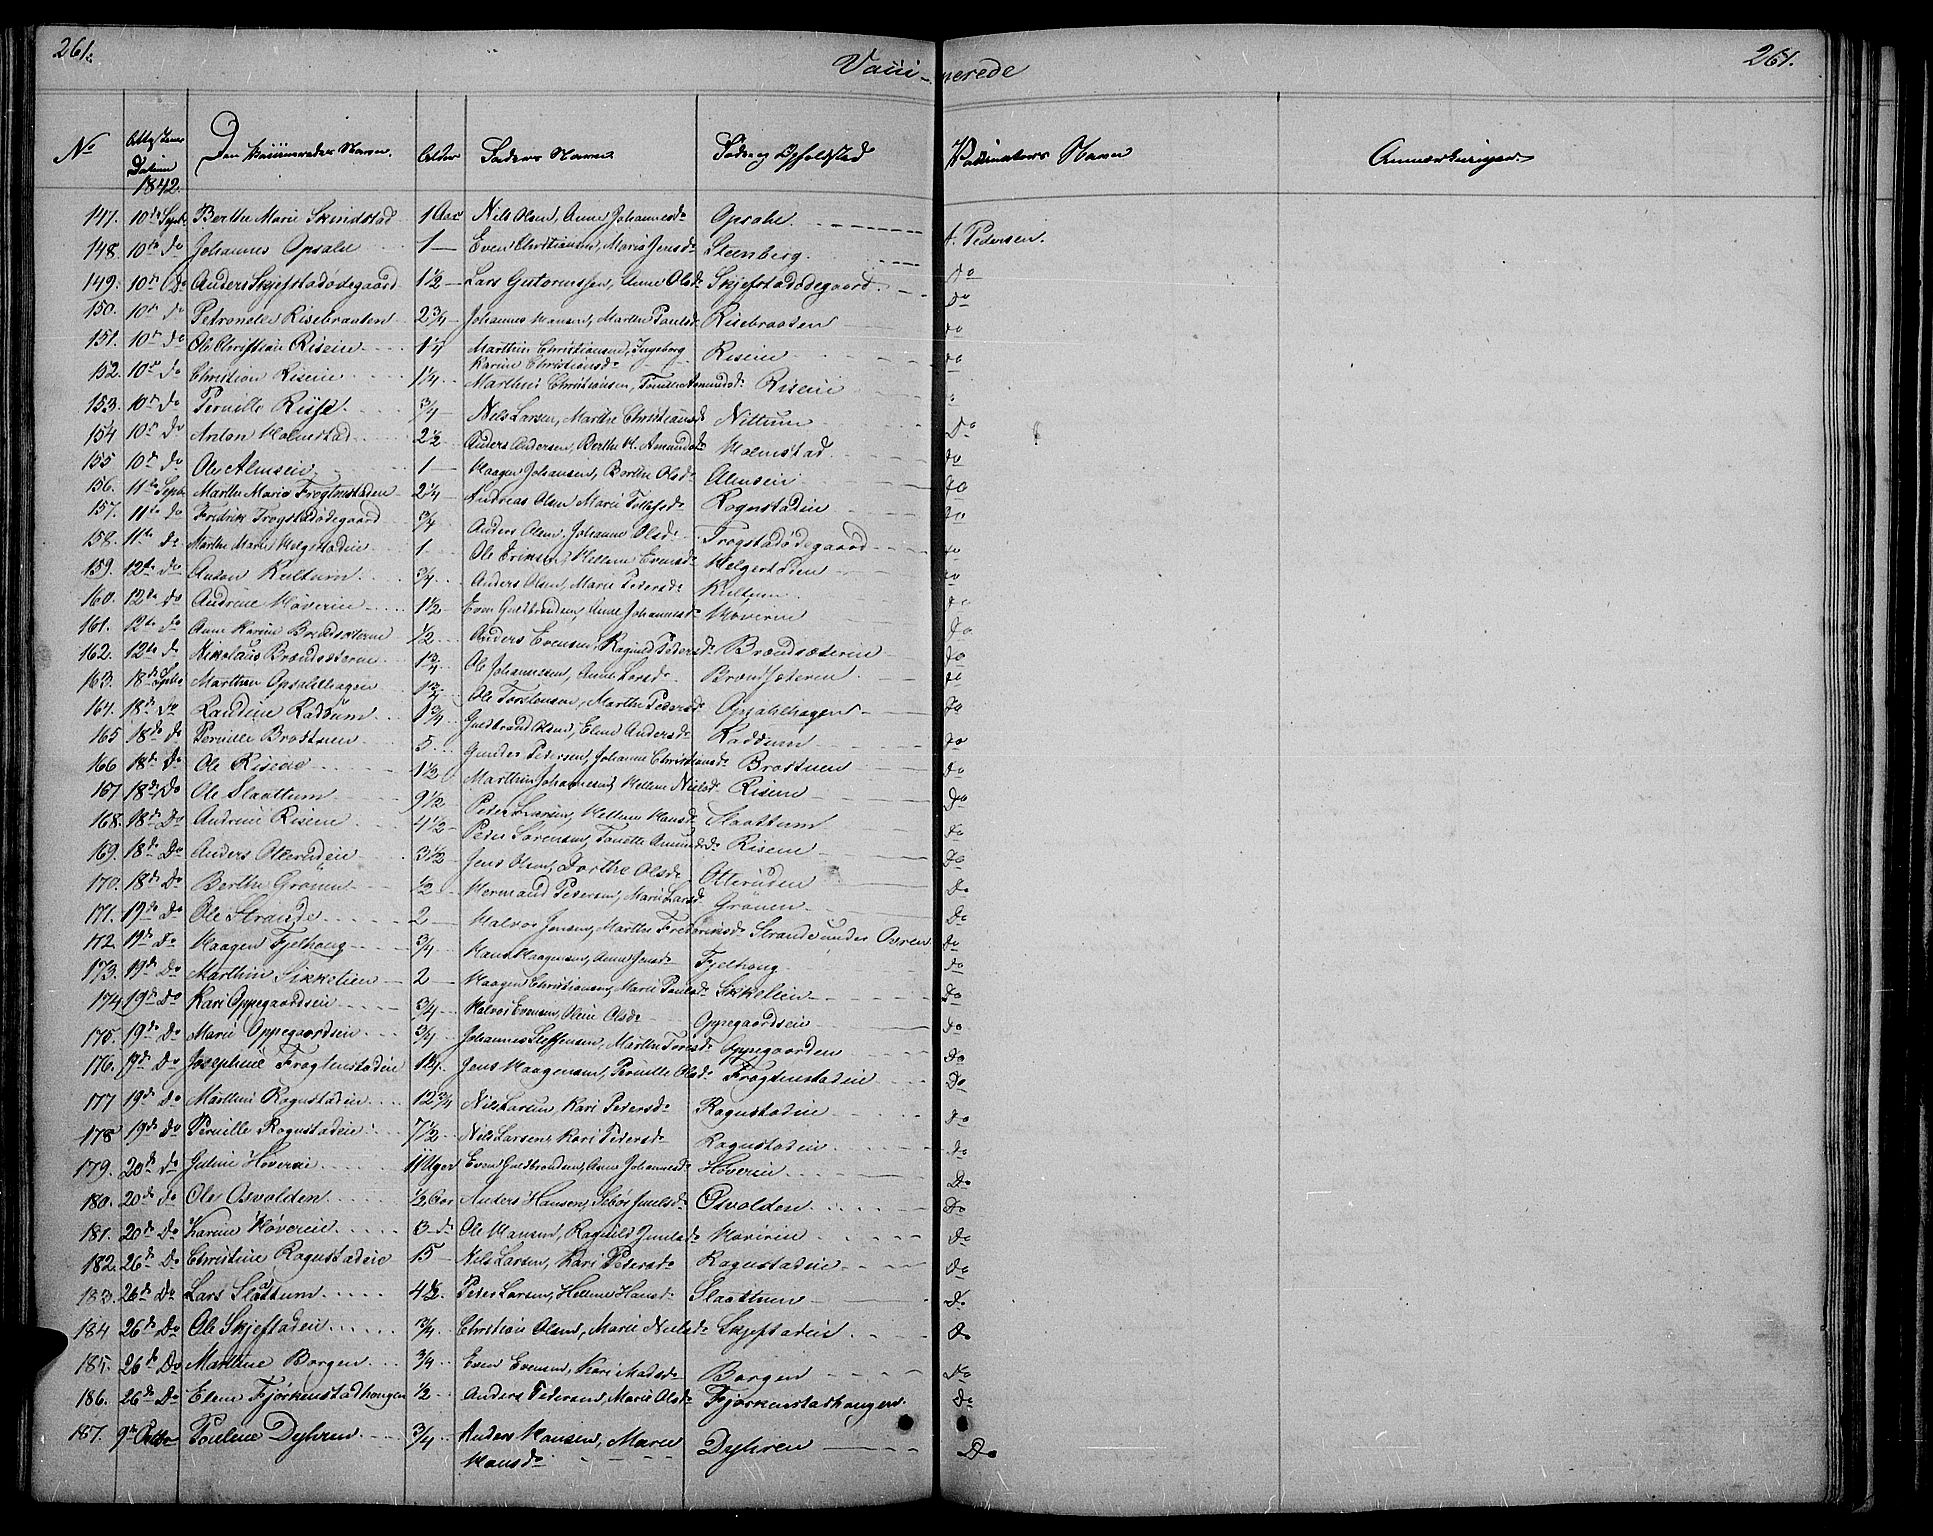 261.
Vacci-nerede
261.
No Attestens Datum 1842. Den Vaccineredes Navn. Alder Foders Navn. Fødeog Opholdsted Vaccinators Navn Anmærkninger.
147. 10de Septbr Berthe Marie 1 Aar Nils Olsen, Anne Johannesdr Opsahl
148. 10de do Johannes Opsahl 1 Even Christiansen, Marie Jensdr Steenberg A. Pedersen.
149. 10de do Anders Skjefstadødegaard 1½ Lars Guttormssen, Anne Olsdr Skjefstadødegaard do
150. 10de do Petronelle Risebraaten 2¾ Johannes Hansen, Marthe Paulsdr Risebraaten do
151. 10de do Ole Christian Riseie 1¼ Marthin Christiansen, Ingeborg Karine Christiansdr Riseie do
152. 10de do Christian Riseie 1¼ Marthin Christiansen, Tonette Amundsdr Riseie do
153. 10de do Pernille Riise ¾ Nils Larsen, Marthe Christiansdr Nittum
154 10de do Anton Holmstad 2½ Anders Andersen, Berthe M. Amundsdr Holmstad do
155 10de do Ole Almseie 1 Haagen Johansen, Berthe Olsdr Almseie do
156. 11te Septbr Marthe Marie Frogtenstadeie 2¼ Andreas Olsen Marie Tollefsdr Rognstadeie do
157. 11te do Fredrik Frogstadødegaard ¾ Anders Olsen, Johanne Olsdr Frogstadødegaard do
158. 11te do Marthe Marie Helgestadeie 1 Ole Eriksen, Hellene Evensdr do
159. 12te do Anton Kultum ¾ Anders Olsen, Marie Pedersdr Kultum do
160. 12te do Andrine Høverie 1½ Even Guldbrandsen, Anne Johannesdr Høverie do
161. 12te do Anne Karine Brændsæterne ½ Anders Evensen, Ragnild Pedersdr Brændsæteren do
162. 12te do Nikolaus Brændsæterne 1¾ Ole Johannessen, Anne Larsdr Brændsæteren do
163. 18de Septbr Marthea Opsahlhagen 1¾ Ole Torstensen, Marthe Pedersdr Opsahlhagen do
164. 18de do Landine Kadsum 1¾ Guldbrand Olsen, Elene Andersdr Kaddsum do
165 18de do Pernille Brostuen 5 Gunder Pedersen, Johanne Christiansdr Brostuen do
166 18de Do Ole Riseie 1½ Marthin Johannesen, Hellene Nielsdr Riseie do
167 18de Do Ole Slaattum 9½ Peder Larsen, Hellene Hansdr Slaattum Do
168. 18de Do Andrine Riseie 4½ Peder Sørensen, Tonette Amundsdr Riseie do
169. 18de Do Anders Otteruden 3½ Jens Olsen, Dorthe Olsdr Otteruden Do
170. 18de Do Berthe Grønen ½ Hermand Pedersen, Marie Larsdr Grønen Do
171. 19de Do Ole Strande 2 Halvor Jensen, Marthe Frederiksdr Strande under Do
172 19de Do Haagen Fjelhoug ¾ Hans Haagensen, Anne Jensdr Fjelhoug Do
173. 19de Do Marthin Sikkelien 2 Haagen Christiansen, Marie Paulsdr Sikkelien Do
174. 19de Do Kari Oppegaardseie ¾ Halvor Evensen, Oline Olsdr Oppegaardseie Do
175. 19de Do Marie Oppegaardseie ¾ Johannes Steffensen, Marthe Toresdr Oppegaarden Do
176. 19de Do Josephine Frogtenstadeie 1¼ Jens Haagensen, Pernille Olsdr Frogtenstadeie Do
177 19de Do Marthine Rognstadeie 12¾ Nils Larsen, Kari Pedersdr Rognstadeie Do
178 19de Do Pernille Rognstadeie 7½ Nils Larsen, Kari Pedersdr Rognstadeie Do
179. 20de Do Juline Høverie 11 Uger Even Guldbrandsen, Anne Johannesdr Høverie Do
180. 20de do Ole Osvolden ½ Aar Anders Hansen, Osvolden Do
181. 20de Do Karine Høverie 3 do Ole Hansen, Ragnild Høverie Do
182. 26de Do Christine Rognstadeie 15 Nils Larsen, Kari Pedersdr Rognstadeie Do
183. 26de Do Lars Slaattum 4½ Peder Larsen, Hellene Hansdr Slaattum Do
184 26de Do Ole Skjefstadeie ¾ Christian Olsen, Marie Nielsdr Skjefstadeie Do
185. 26de Do Marthine Borgen ¾ Even Evensen, Kari Madsdr Borgen Do
186. 26de Do Elene Fjørkenstadhougen ½ Anders Pedersen, Marie Olsdr Fjørkenstadhougen Do
187. 9de Octbr Poulene Dyhren ¾ Anders Hansen, Marie Hansdr Dyhren Do